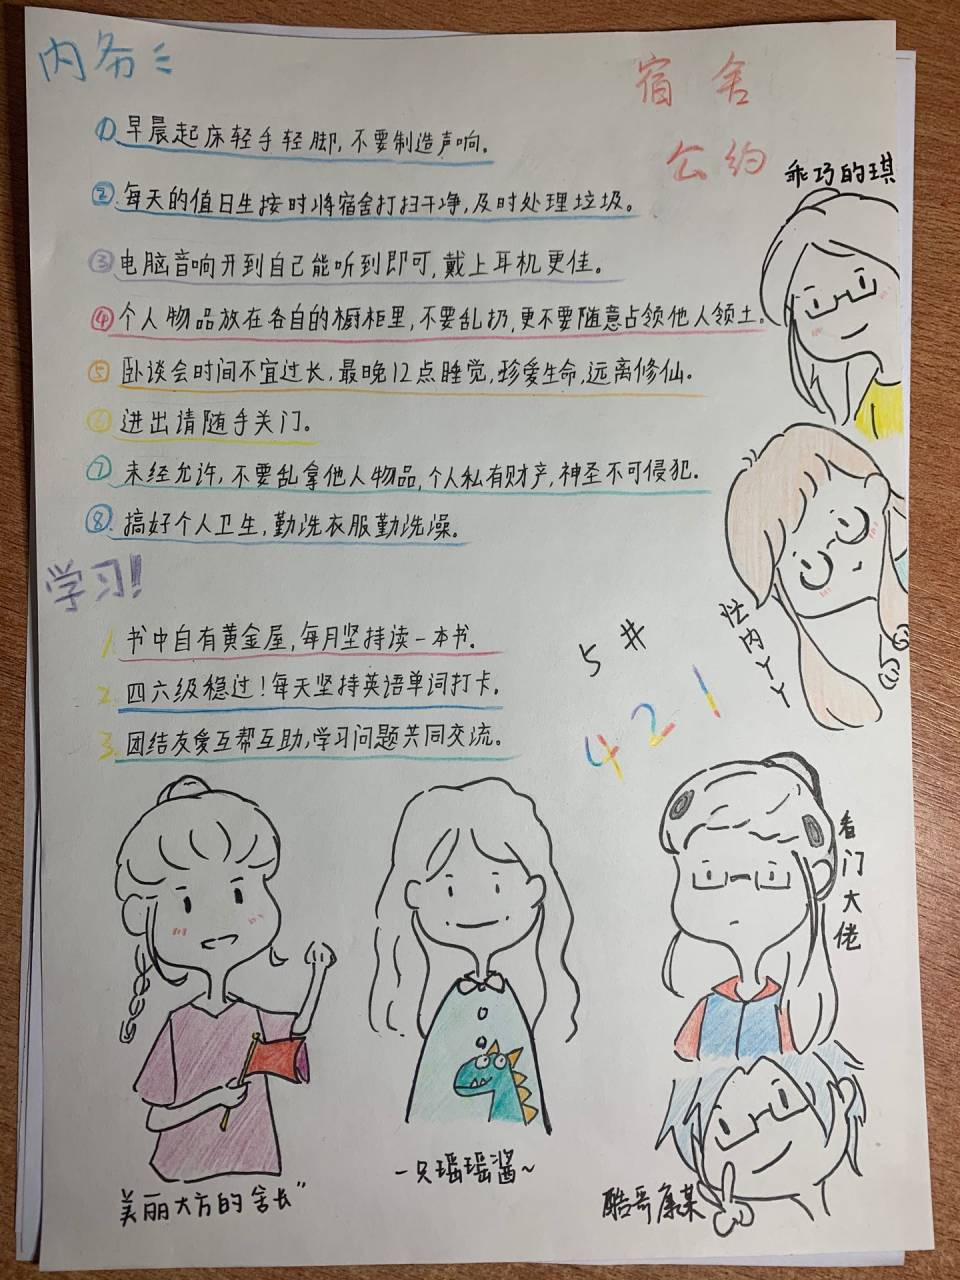 内务
宿舍
公约
①早晨起床轻手轻脚,不要制造声响。
②每天的值日生按时将宿舍打扫干净,及时处理垃圾。
③电脑音响开到自己能听到即可,戴上耳机更佳。
④个人物品放在各自的橱柜里,不要乱扔,更不要随意占领他人领土。
⑤卧谈会时间不宜过长,最晚12点睡觉,珍爱生命,远离修仙。
⑥进出请随手关门。
⑦未经允许,不要乱拿他人物品,个人私有财产,神圣不可侵犯。
⑧搞好个人卫生,勤洗衣服勤洗澡。
学习!
1.书中自有黄金屋,每月坚持读一本书。
2.四六级稳过!每天坚持英语单词打卡。
3.团结友爱互帮互助,学习问题共同交流。
5#
421
乖巧的琪
内丫丫
看门大佬
美丽大方的"舍长"
一只瑶瑶酱~
酷哥康某